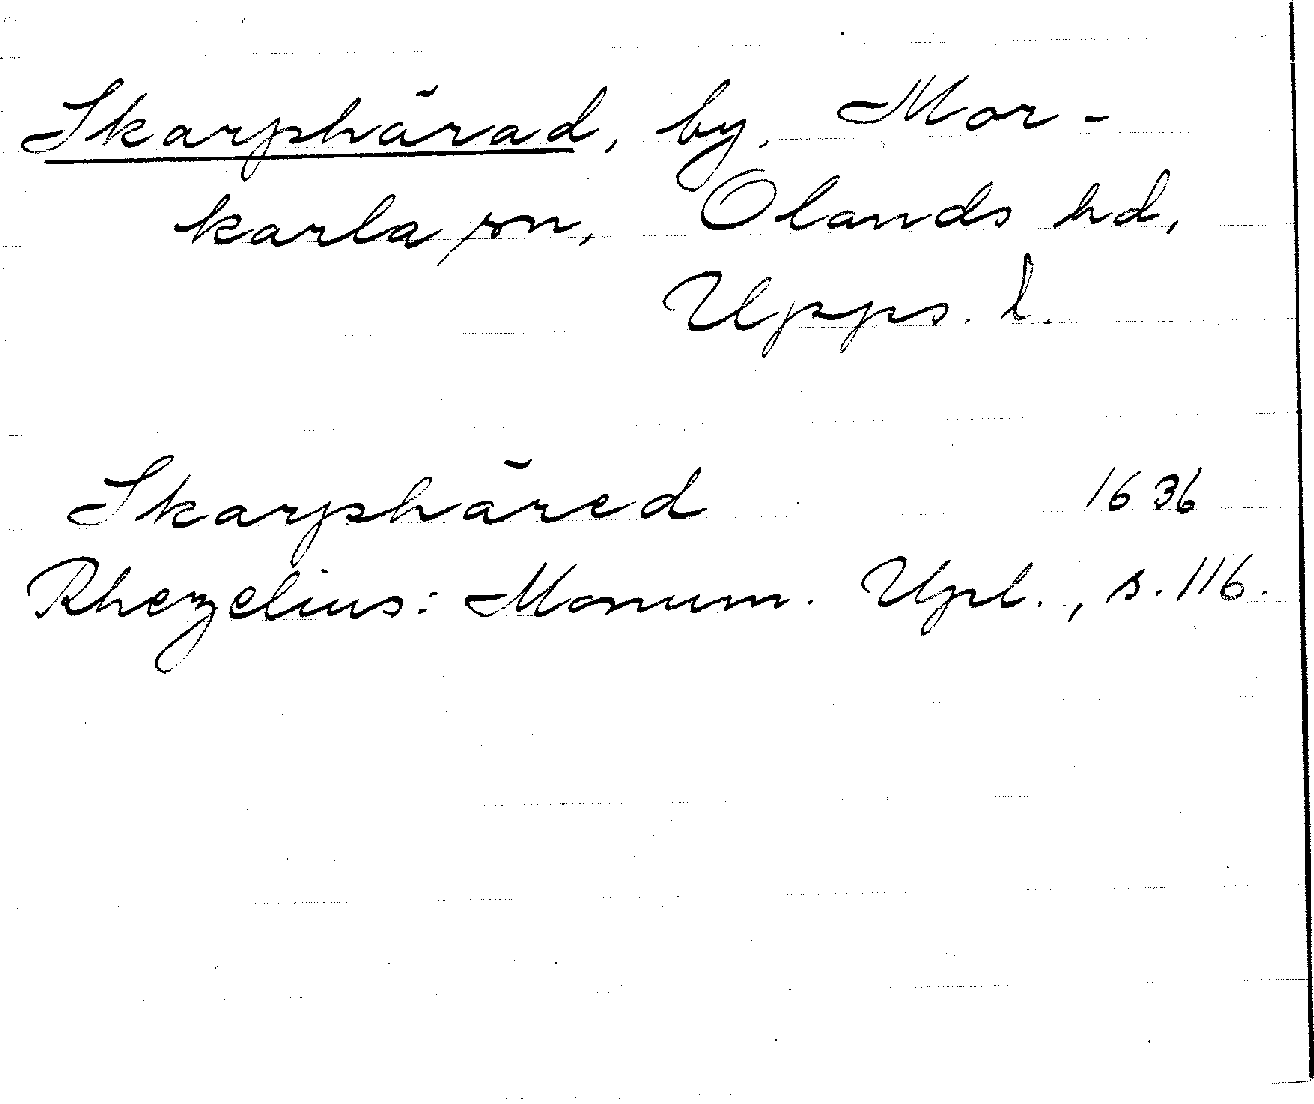 Skarphärad, by, Mor-
karla sn, Olands hd,
Upps. l.
Skarphäred 1636
Rhezelius: Monum. Upl., s. 116.